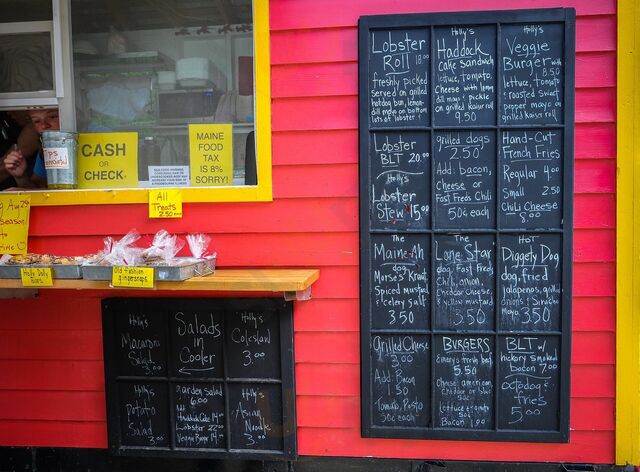 TIPS
CASH
or
CHECK.
MAINE
FOOD
TAX
IS 8%
SORRY!
All
Treats
2.50 ea
Aug 29
season!
to
time
Holly Dolly
Bars
Old Fashion
gingersnaps
Lobster
Roll 18.00
freshly picked
served on grilled
hotdog bun, lemon-
dill mayo on bottom
lots of lobster!
Holly's
Haddock
cake sandwich
lettuce, tomato,
Cheese with lemon
dill mayo & pickle
on grilled kaiser roll
9.50
Holly's
Veggie
Burger with 8.50
lettuce, tomato
& roasted sweet
pepper mayo on
grilled kaiser roll
Lobster
BLT 20.00
Holly's
Lobster
Stew 15.00
grilled dogs
2.50
Add: bacon,
cheese or
Fast Freds Chili
50¢ each
Hand-Cut
French Fries
Regular 4.00
Small 2.50
Chili Cheese
5.00
The
Maine-Ah
dog,
Morse's Kraut
Spiced mustard
& celery salt
3.50
The
Lone Star
Dog, Fast Freds
Chili, onion,
cheddar cheese
& yellow mustard
3.50
HoT
Diggety Dog
dog, fried
Jalapenos, grilled
onions & Siracha
Mayo 3.50
Grilled Cheese
3.00
Add: Bacon
1.50
Tomato, Pesto
50¢ each
BURGERS
5.50
Cheese: american,
Lettuce & tomato
50¢
Bacon 1.00
BLT w/
hickory smoked
bacon 7.00
octodog &
fries
5.00
Holly's
Macaroni
Salad
3.00
Salads
in
Cooler
Holly's
Coleslaw
3.00
Holly's
Potato
Salad
3.00
garden salad
6.00
Haddock Cake 14.00
Lobster 22.00
Veggie Burger 14.00
Holly's
Asian
Noodle
3.00